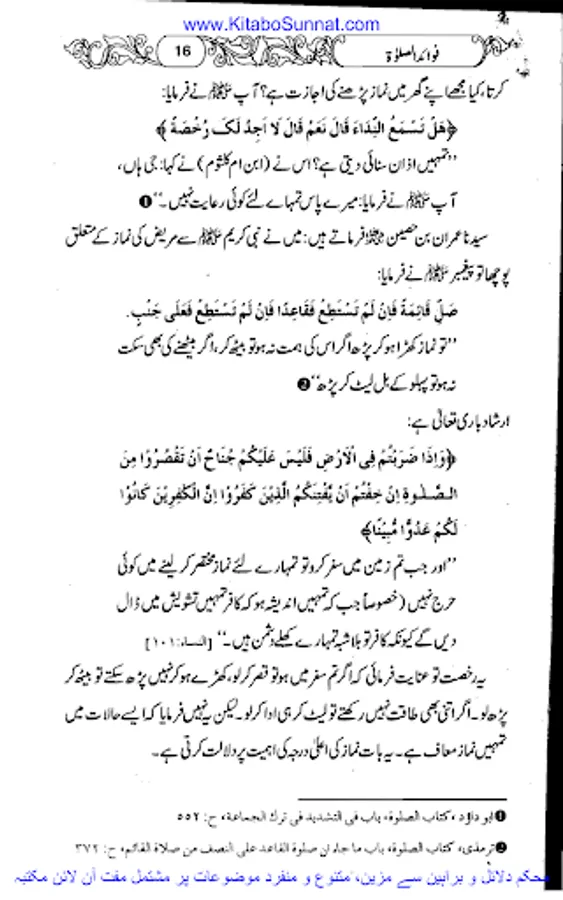 www.KitaboSunnat.com
فوائد الصلوٰۃ
16
کرتا، کیا مجھے اپنے گھر میں نماز پڑھنے کی اجازت ہے؟ آپ ﷺ نے فرمایا:
﴿هَلْ تَسْمَعُ النِّدَاءَ قَالَ نَعَمْ قَالَ لَا اَجِدُ لَکَ رُخْصَةً﴾
’’تمہیں اذان سنائی دیتی ہے؟ اس نے (ابن ام کلثوم) نے کہا: جی ہاں،
آپ ﷺ نے فرمایا: میرے پاس تمہارے لئے کوئی رعایت نہیں۔‘‘ ❶
سیدنا عمران بن حصین رضی اللہ عنہ فرماتے ہیں: میں نے نبی کریم ﷺ سے مریض کی نماز کے متعلق
پوچھا تو پیغمبر ﷺ نے فرمایا:
صَلِّ قَائِمَةً فَاِنْ لَمْ تَسْتَطِعْ فَقَاعِدًا فَاِنْ لَمْ تَسْتَطِعْ فَعَلَى جَنْبٍ.
’’تو نماز کھڑا ہو کر پڑھ اگر اس کی ہمت نہ ہو تو بیٹھ کر، اگر بیٹھنے کی بھی سکت
نہ ہو تو پہلو کے بل لیٹ کر پڑھ‘‘ ❷
ارشاد باری تعالیٰ ہے:
﴿وَاِذَا ضَرَبْتُمْ فِی الْاَرْضِ فَلَیْسَ عَلَیْکُمْ جُنَاحٌ اَنْ تَقْصُرُوْا مِنَ
الصَّلٰوةِ اِنْ خِفْتُمْ اَنْ یَّفْتِنَکُمُ الَّذِیْنَ کَفَرُوْا اِنَّ الْکٰفِرِیْنَ کَانُوْا
لَکُمْ عَدُوًّا مُّبِیْنًا﴾
’’اور جب تم زمین میں سفر کرو تو تمہارے لئے نماز مختصر کر لینے میں کوئی
حرج نہیں (خصوصاً جب کہ تمہیں اندیشہ ہو کہ کافر تمہیں تشویش میں ڈال
دیں گے کیونکہ کافر تو بلاشبہ تمہارے کھلے دشمن ہیں۔‘‘ [النساء:۱۰۱]
یہ رخصت تو عنایت فرمائی کہ اگر تم سفر میں ہو تو قصر کر لو، کھڑے ہو کر نہیں پڑھ سکتے تو بیٹھ کر
پڑھ لو۔ اگر اتنی بھی طاقت نہیں رکھتے تو لیٹ کر ہی ادا کر لو۔ لیکن یہ نہیں فرمایا کہ ایسے حالات میں
تمہیں نماز معاف ہے۔ یہ بات نماز کی اعلیٰ درجہ کی اہمیت پر دلالت کرتی ہے۔
❶ ابو داؤد، کتاب الصلوة، باب فی التشدید فی ترک الجماعة، ح: ۵۵۲
❷ ترمذی، کتاب الصلوة، باب ما جاء ان صلوة القاعد علی النصف من صلاة القائم، ح: ۳۷۲
محکم دلائل و براہین سے مزین، متنوع و منفرد موضوعات پر مشتمل مفت آن لائن مکتبہ